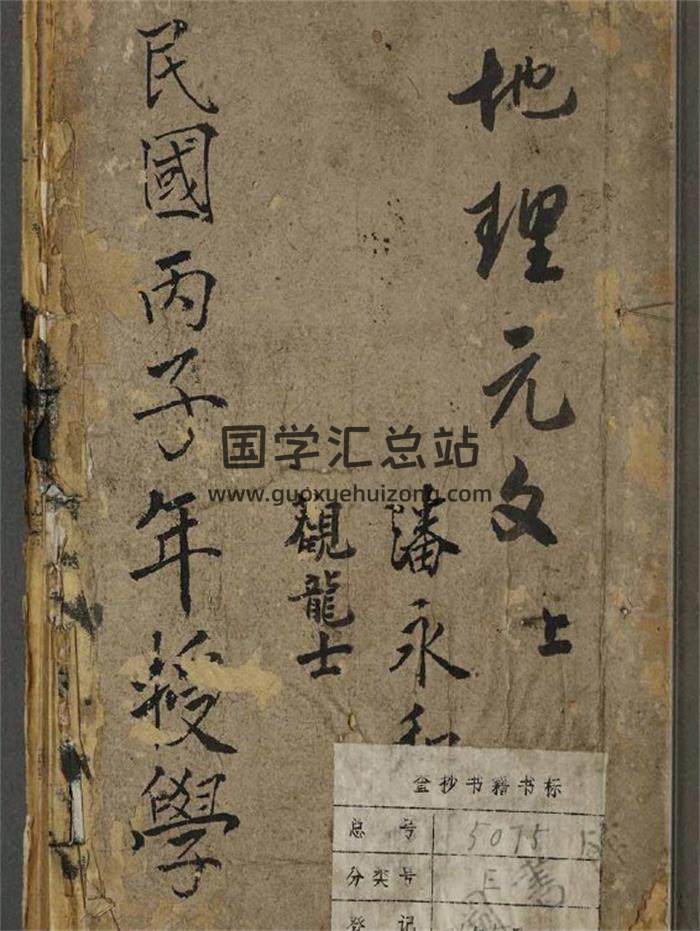 地理元文
上
潘永和
觀龍士
民國丙子年授學
国学汇总站
www.guoxuehuizong.com
金抄书籍书标
总号 5075
分类号 E
登记